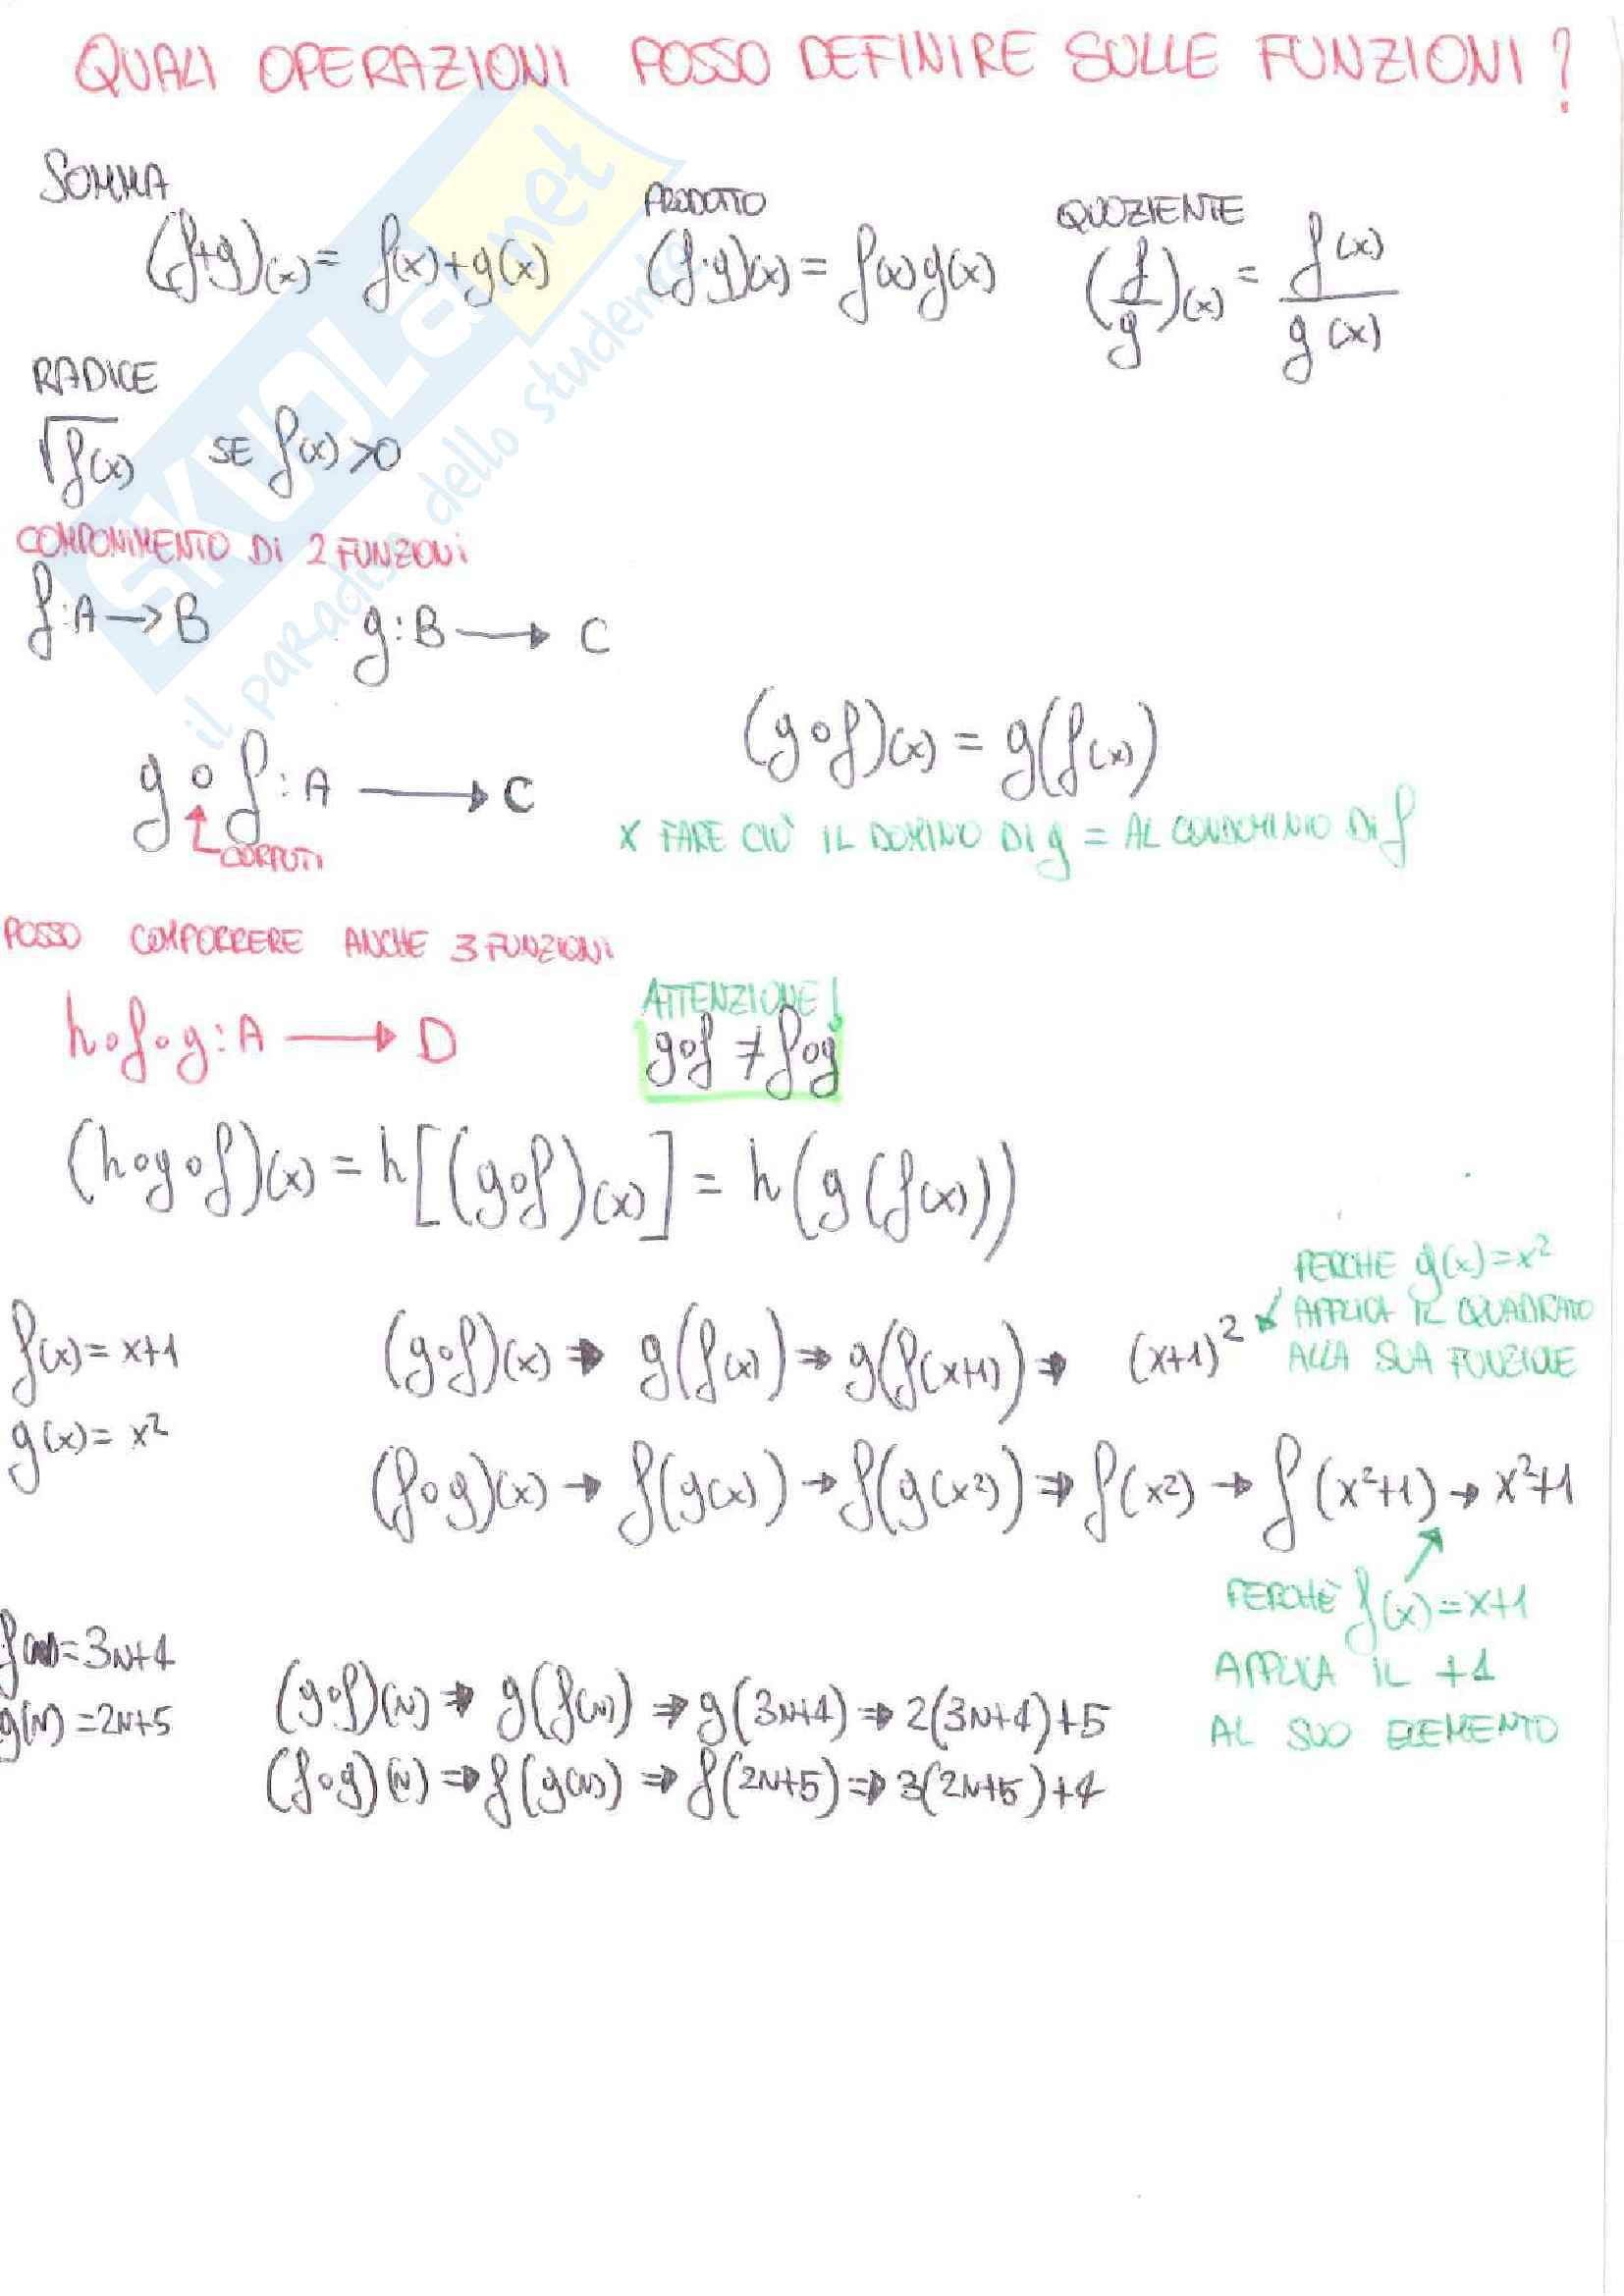 QUALI OPERAZIONI POSSO DEFINIRE SULLE FUNZIONI?
SOMMA
(f+g)(x) = f(x)+g(x)
PRODOTTO
(f·g)(x) = f(x)g(x)
QUOZIENTE
(f/g)(x) = f(x)/g(x)
RADICE
√f(x) SE f(x)>0
COMPONIMENTO DI 2 FUNZIONI
f:A→B g:B→C
g∘f:A→C
(g∘f)(x) = g(f(x))
X FARE CIÒ IL DOMINO DI g = AL CONDOMINIO DI f
POSSO COMPORRERE ANCHE 3 FUNZIONI
h∘f∘g:A→D
ATTENZIONE!
g∘f ≠ f∘g
(h∘g∘f)(x) = h[(g∘f)(x)] = h(g(f(x)))
f(x) = x+1
g(x) = x²
(g∘f)(x) ⇒ g(f(x)) ⇒ g(f(x+1)) ⇒ (x+1)²
PERCHE g(x)=x²
APPLICA IL QUADRATO
ALLA SUA FUNZIONE
(f∘g)(x) → f(g(x)) → f(g(x²)) ⇒ f(x²) → f(x²+1) → x²+1
PERCHÈ f(x)=x+1
APPLICA IL +1
AL SUO ELEMENTO
f(N)=3N+4
g(N)=2N+5
(g∘f)(N) ⇒ g(f(N)) ⇒ g(3N+4) ⇒ 2(3N+4)+5
(f∘g)(N) ⇒ f(g(N)) ⇒ f(2N+5) ⇒ 3(2N+5)+4
SKUOLA.net
il paradiso dello studente